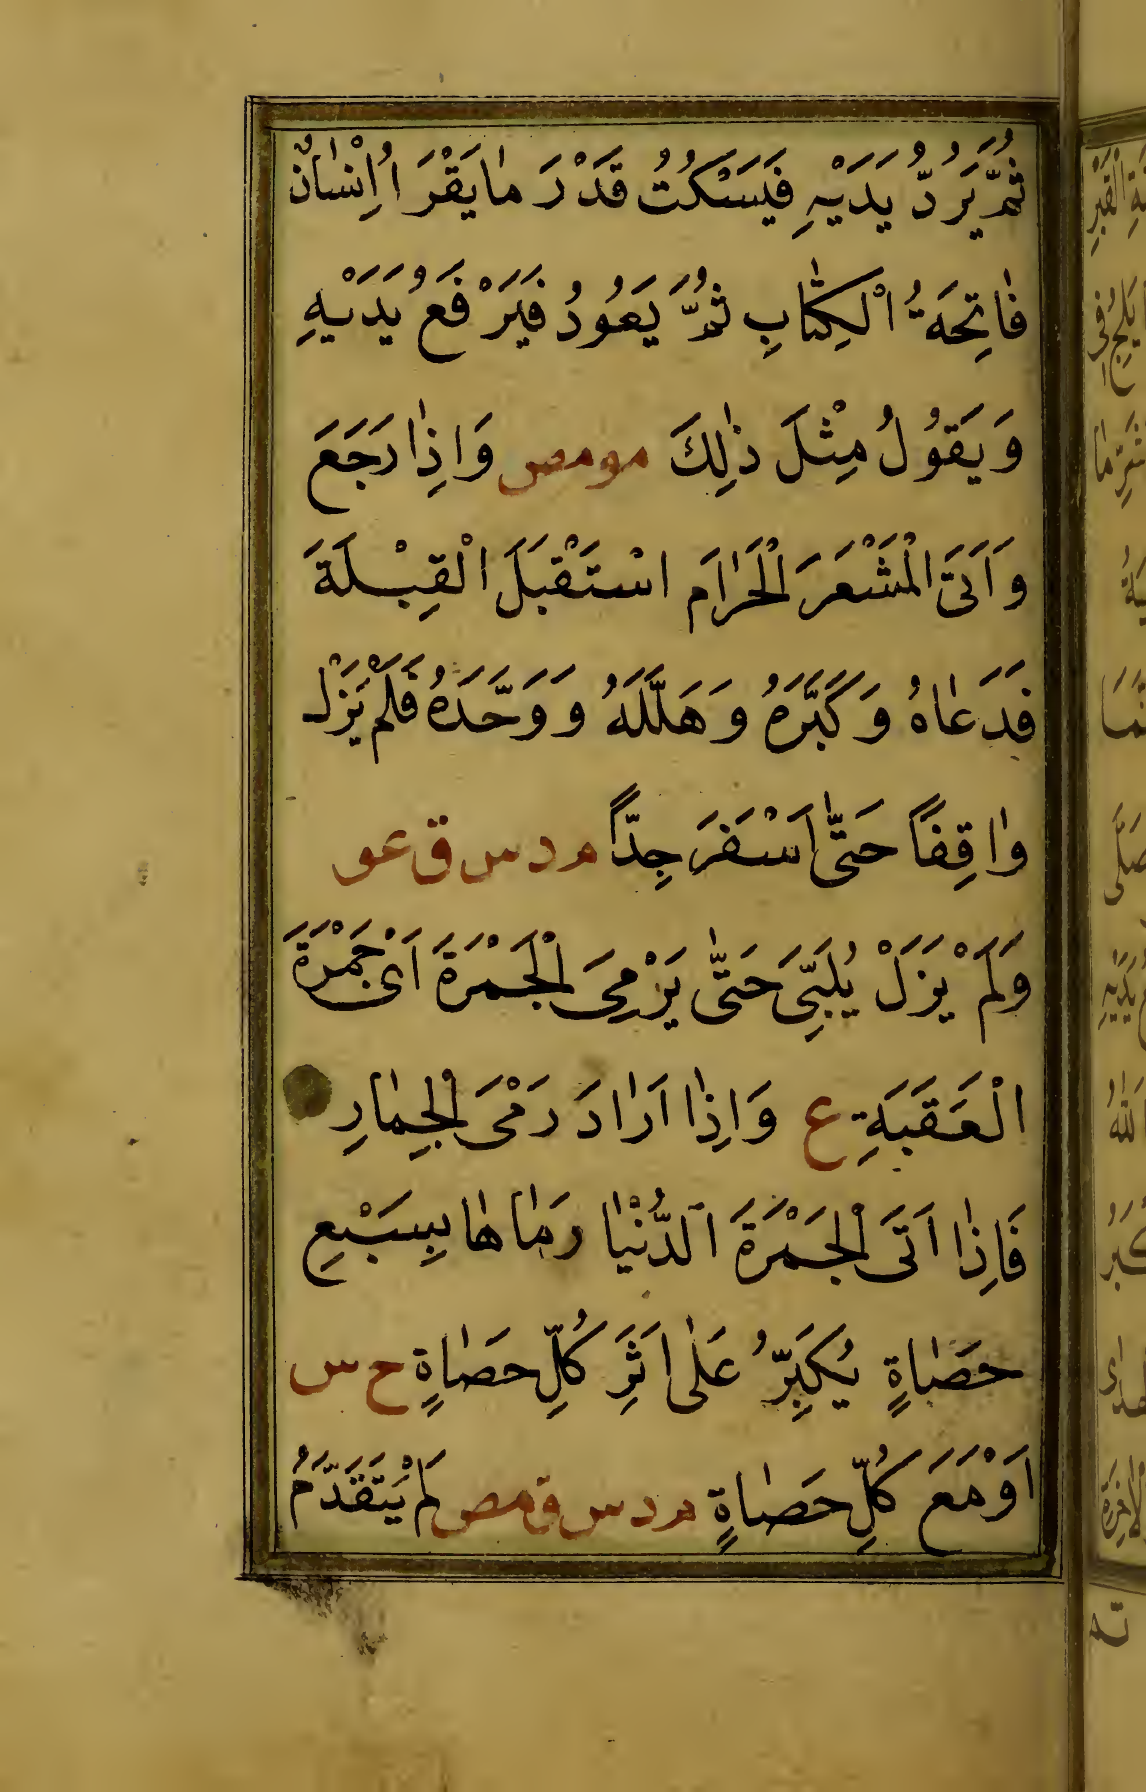 ثُمَّ يَرُدُّ يَدَيْهِ فَيَسْكُتُ قَدْرَ مٰا يَقْرَاُ اِنْسٰانٌ
فٰاتِحَةُ الْكِتٰابِ ثُمَّ يَعُودُ فَيَرْفَعُ يَدَيْهِ
وَيَقُولُ مِثْلَ ذٰلِكَ مومص وَاِذٰا رَجَعَ
وَاَتَى الْمَشْعَرَ الْحَرٰامَ اسْتَقْبَلَ الْقِبْلَةَ
فَدَعٰاهُ وَكَبَّرَهُ وَهَلَّلَهُ وَوَحَّدَهُ فَلَمْ يَزَلْ
وٰاقِفًا حَتّٰى اَسْفَرَ جِدًّا م د س ق عو
وَلَمْ يَزَلْ يُلَبِّىَ حَتّٰى يَرْمِىَ الْجَمْرَةَ اَىْ جَمْرَةَ
الْعَقَبَةِ ع وَاِذٰا اَرٰادَ رَمْىَ الْجِمٰارِ
فَاِذٰا اَتَى الْجَمْرَةَ الدُّنْيٰا رَمٰاهٰا بِسَبْعِ
حَصَيٰاةٍ يُكَبِّرُ عَلٰى اَثَرِ كُلِّ حَصٰاةٍ خ س
اَوْ مَعَ كُلِّ حَصٰاةٍ م د س ق مص لَمْ يَتَقَدَّمُ